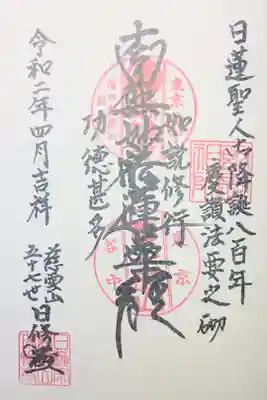 日蓮聖人御降誕八百年
慶讃法要之砌
如説修行
南無妙法蓮華経
功徳甚多
令和二年四月吉祥
慈雲山
五十七世 日修
東京
谷中